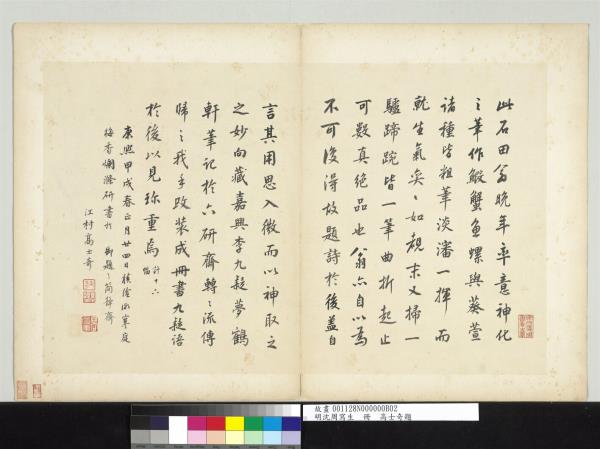 此石田翁晚年率意神化
之筆作鰕蟹魚螺與葵萱
諸種皆粗筆淡瀋一揮而
就生氣奕〻如覩末又掃一
驢蹄踠皆一筆曲折起止
可數真絕品也翁亦自以為
不可復得故題詩於後蓋自
言其用思入微而以神取之
之妙向藏嘉興李九疑夢鶴
軒筆記於六研齋轉〻流傳
歸之我手改裝成冊書九疑語
於後以見珍重焉 計十六幅
康熙甲戌春正月廿四日積陰微寒庭
梅香爛滌研書於 御題〻簡靜齋
江村高士奇
故畫 001128N000000B02
明沈周寫生 冊 高士奇題